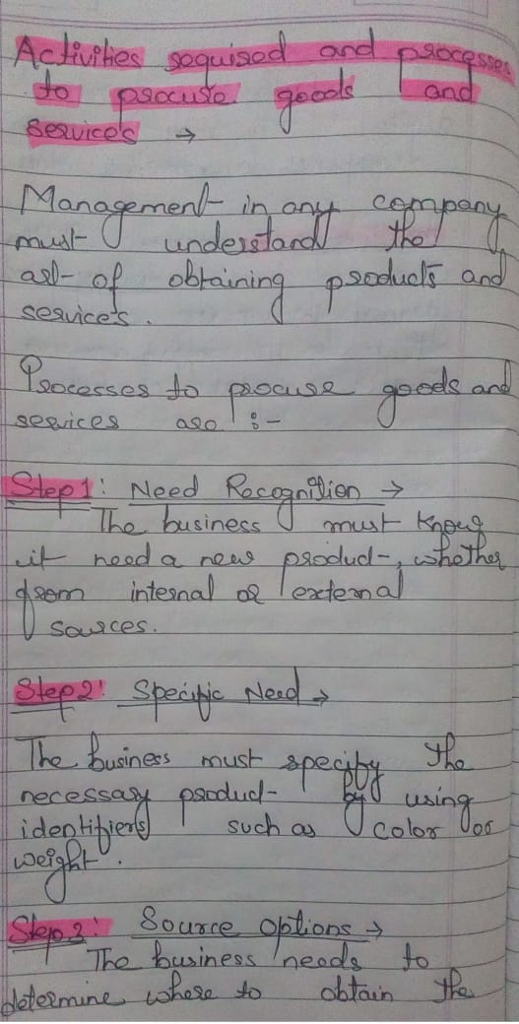 Activities required and processes
to procure goods and
service's →
Management in any company
must understand the
art of obtaining products and
service's.
Processes to procure goods and
services are :-
Step1: Need Recognition →
The business must know
it need a new product, whether
from internal or external
sources.
Step2: Specific Need →
The business must specify the
necessary product by using
identifiers such as color or
weight.
Step3: Source Options →
The business needs to
determine where to obtain the